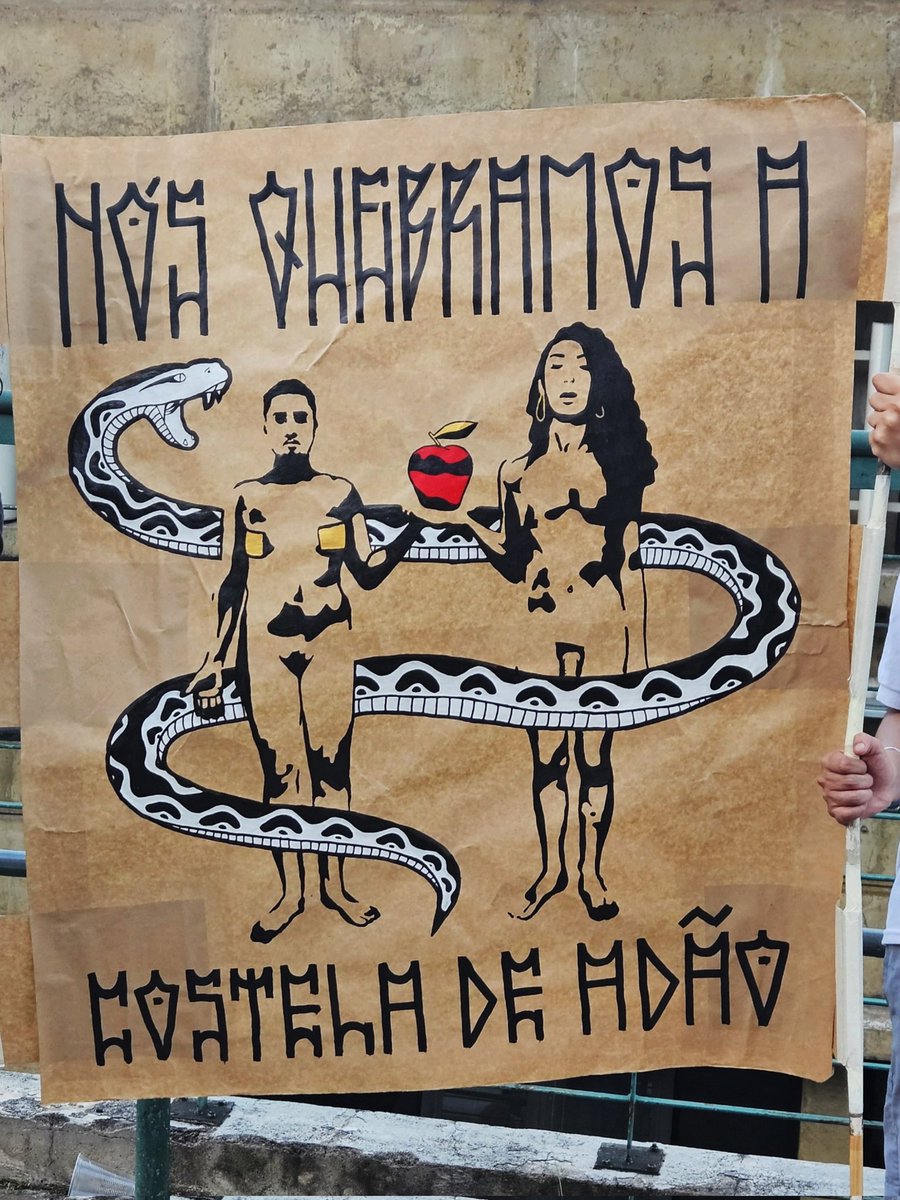 NÓS QUEBRAMOS A
COSTELA DE ADÃO